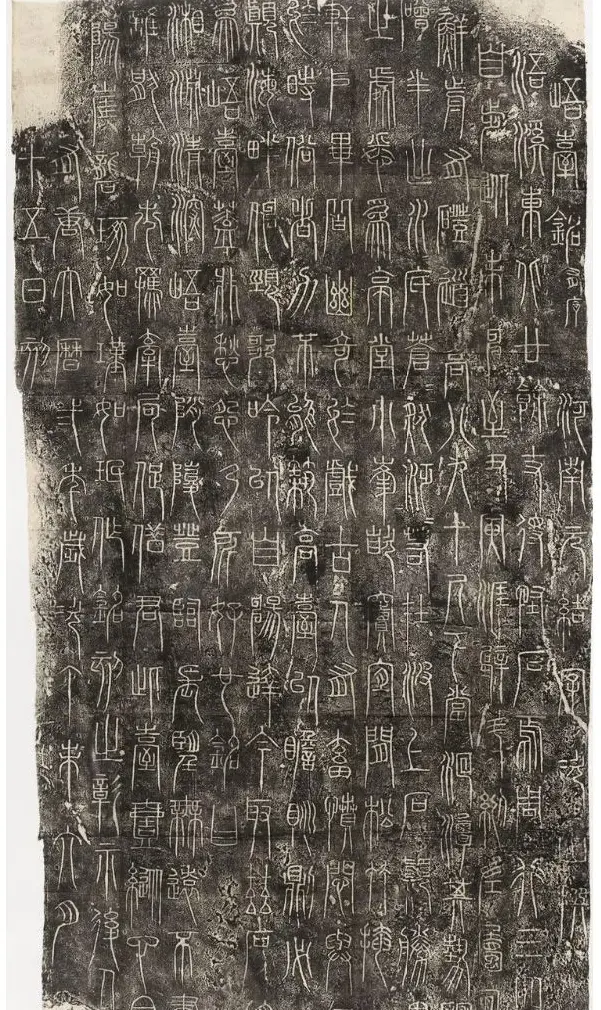 峿臺銘有序 河南元結字次山撰
浯溪東北廿餘丈得怪石焉周行三四
百步從未申至丑寅涯壁斗絕左屬回
鮮前有磴道高八九十尺下當洄潭其勢
磳半出水底蒼然泛泛若在波上石巔勝
之處悉為亭堂小峰嵌竇宜間松竹掩
軒戶畢皆幽奇於戲古人有畜憤悶與
於時俗者力不能築高臺以瞻眺則必
巔海畔伸頸歌吟以自暢達今取茲石
為峿臺蓋非愁怨乃所好也銘曰
湘淵清深峿臺陗陵登臨長望無遠不盡
誰厭朝市羈牽局促借君此臺壹縱心目
陽崖礱琢如瑾如珉作銘刻之彰示後人
有唐大曆二年歲次丁未六月
十五日刻